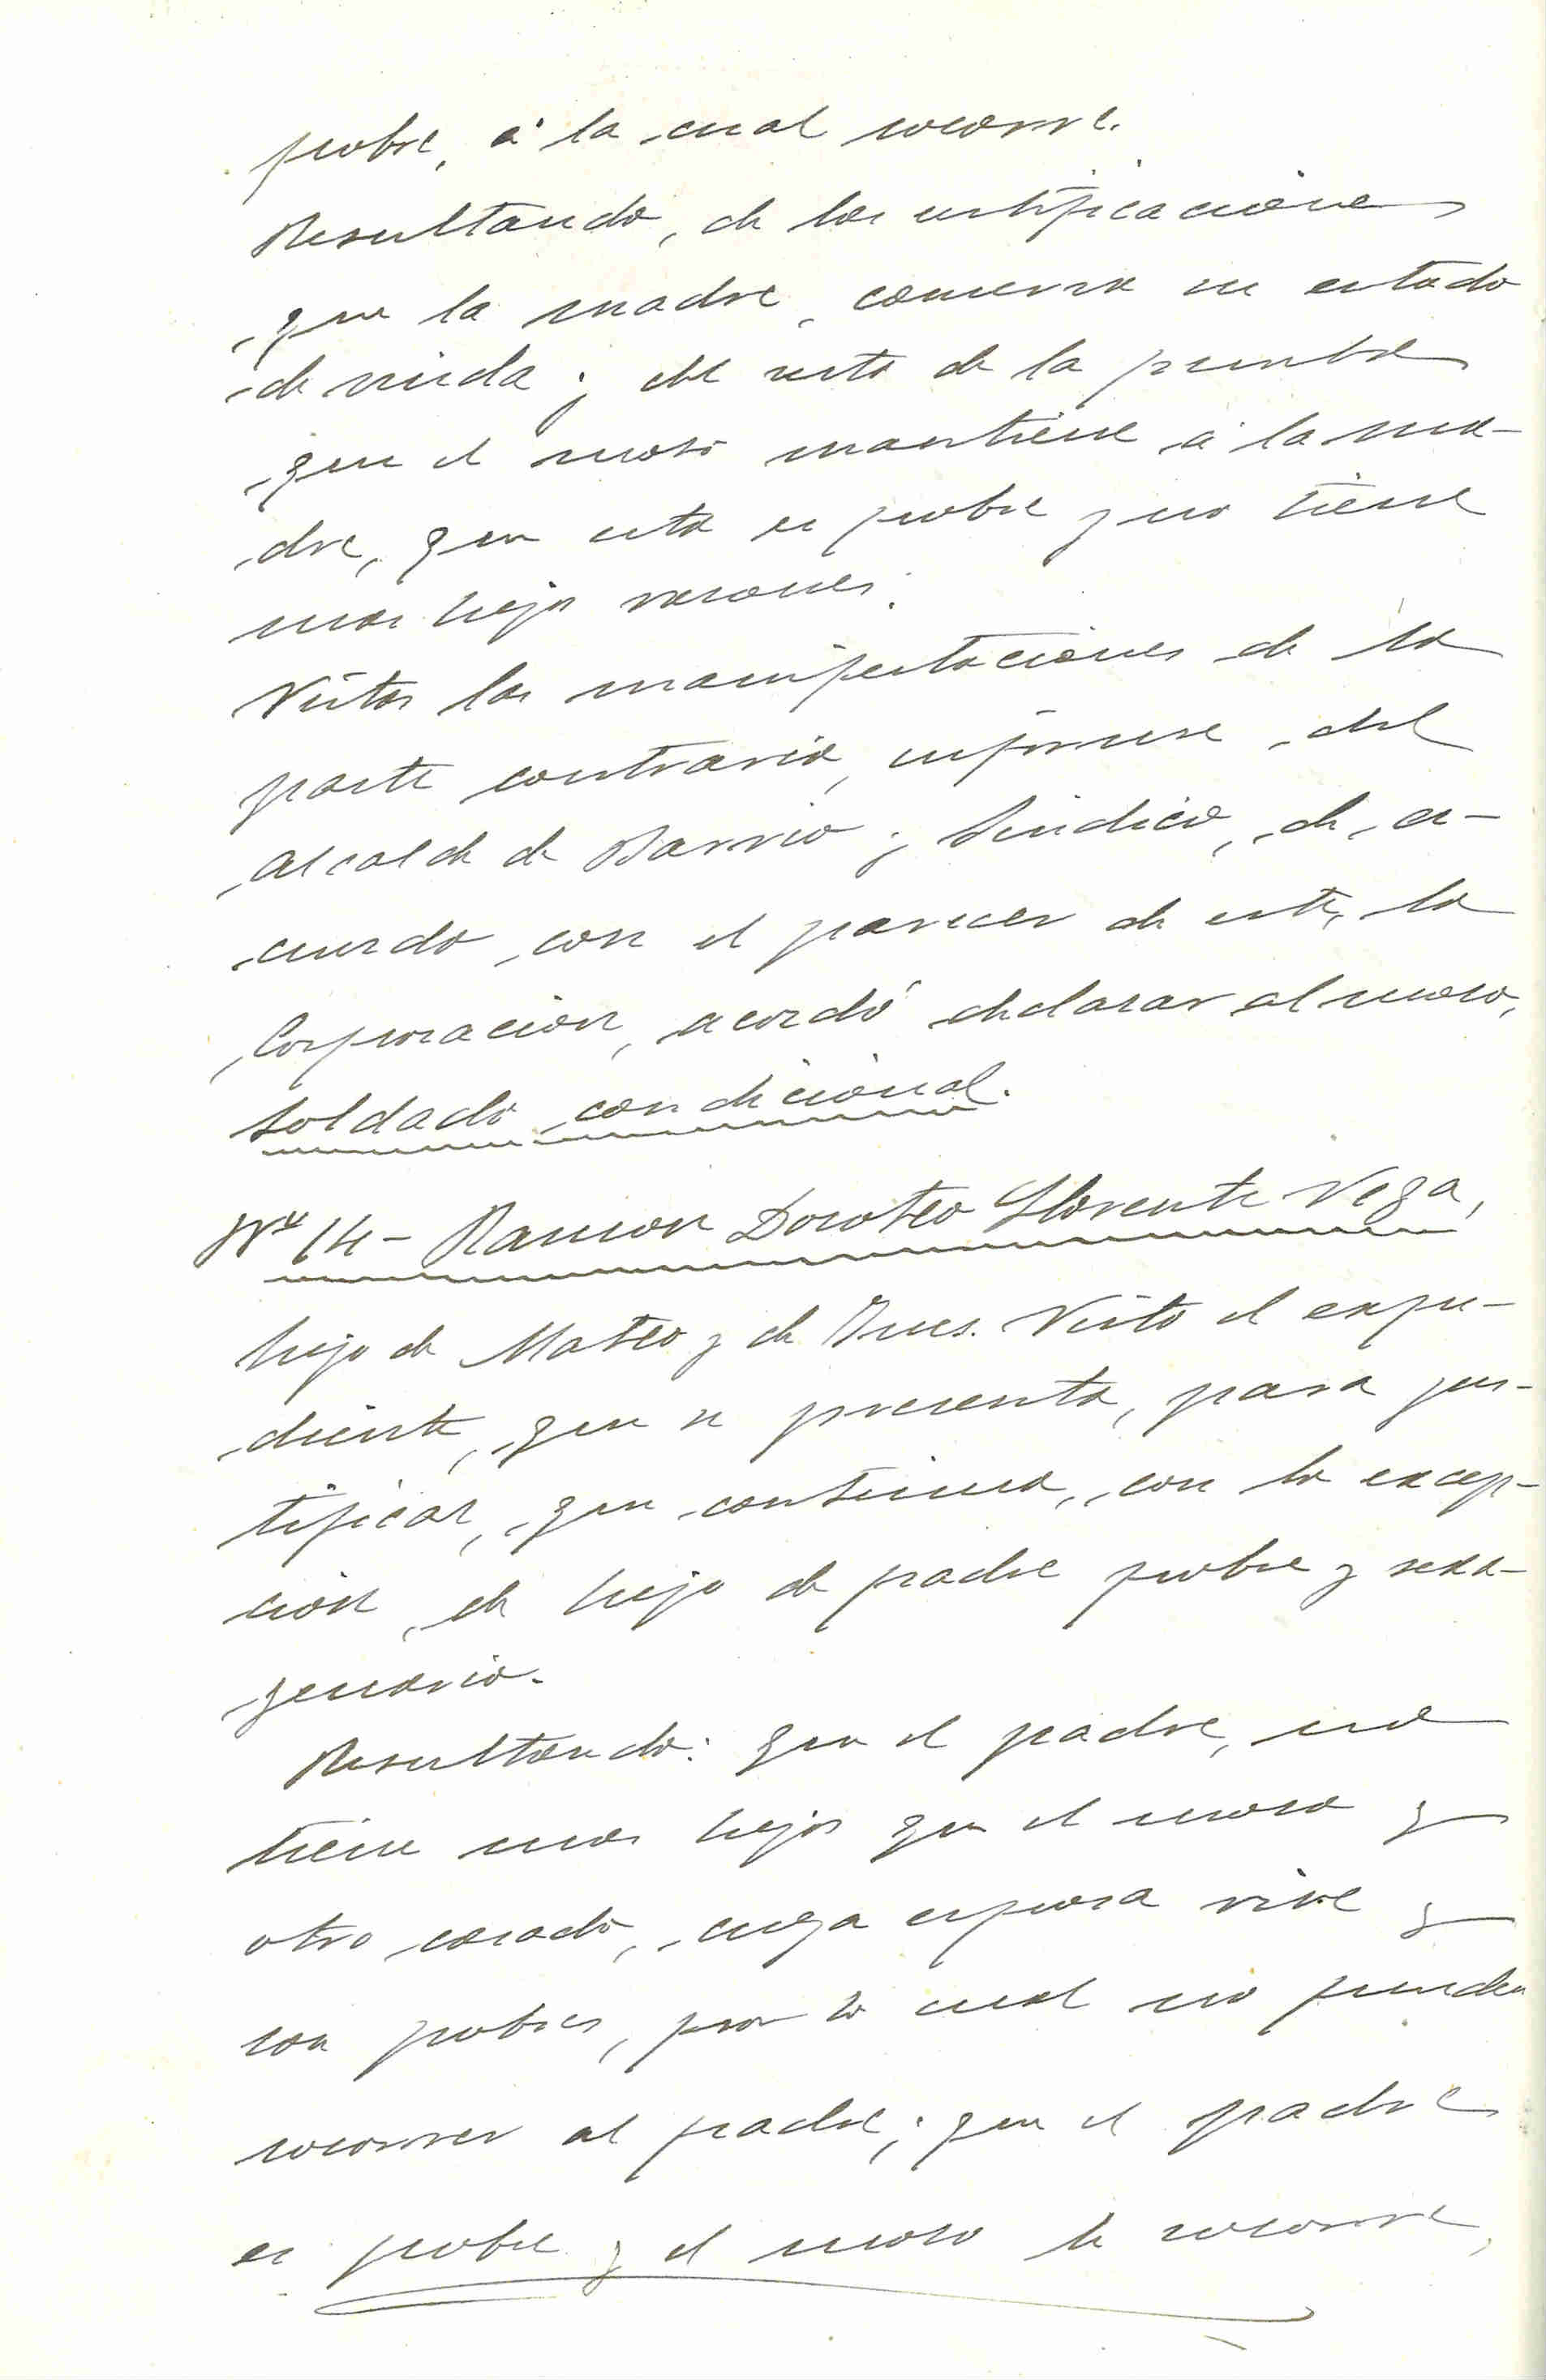 pobre, á la cual socorre.
Resultando, de las certificaciones
que la madre, conserva su estado
de viuda; del resto de la prueba
que el mozo mantiene á la ma-
dre, que esta es pobre y no tiene
mas hijos varones.
Vistas las manifestaciones de la
parte contraria, informes del
Alcalde de Barrio y Sindico, de a-
cuerdo con el parecer de este, la
Corporacion, acordó declarar al mozo,
soldado condicional.
Nº 14 - Ramon Doroteo Llorente Vega,
hijo de Mateo y de Ines. Visto el expe-
diente, que se presenta, para jus-
tificar, que continua, con la excep-
cion, de hijo de padre pobre y sexa-
genario.
Resultando: que el padre, no
tiene mas hijos que el mozo y
otro casado, cuya esposa vive y
son pobres, por lo cual no pueden
socorrer al padre; que el padre
es pobre y el mozo le socorre,